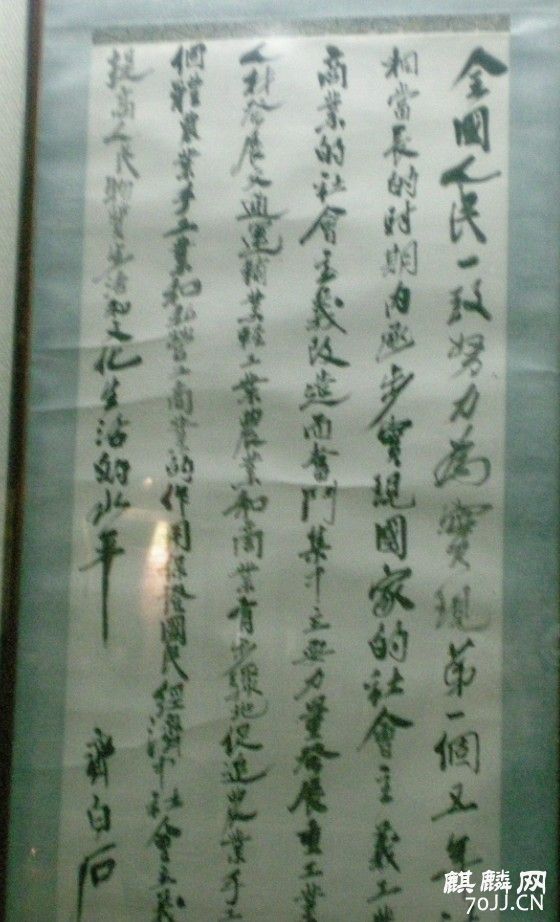 全國人民一致努力為實現第一個五年
相當長的時期內逐步實現國家的社會主義工業
商業的社會主義改造而奮鬥集中主要力量發展重工業
人材發展交通運輸業輕工業農業和商業有步驟地促進農業手工
個體農業手工業和私營工商業的作用保證國民經濟中社會主義
提高人民物質生活和文化生活的水平
齊白石
麒麟网
70JJ.CN